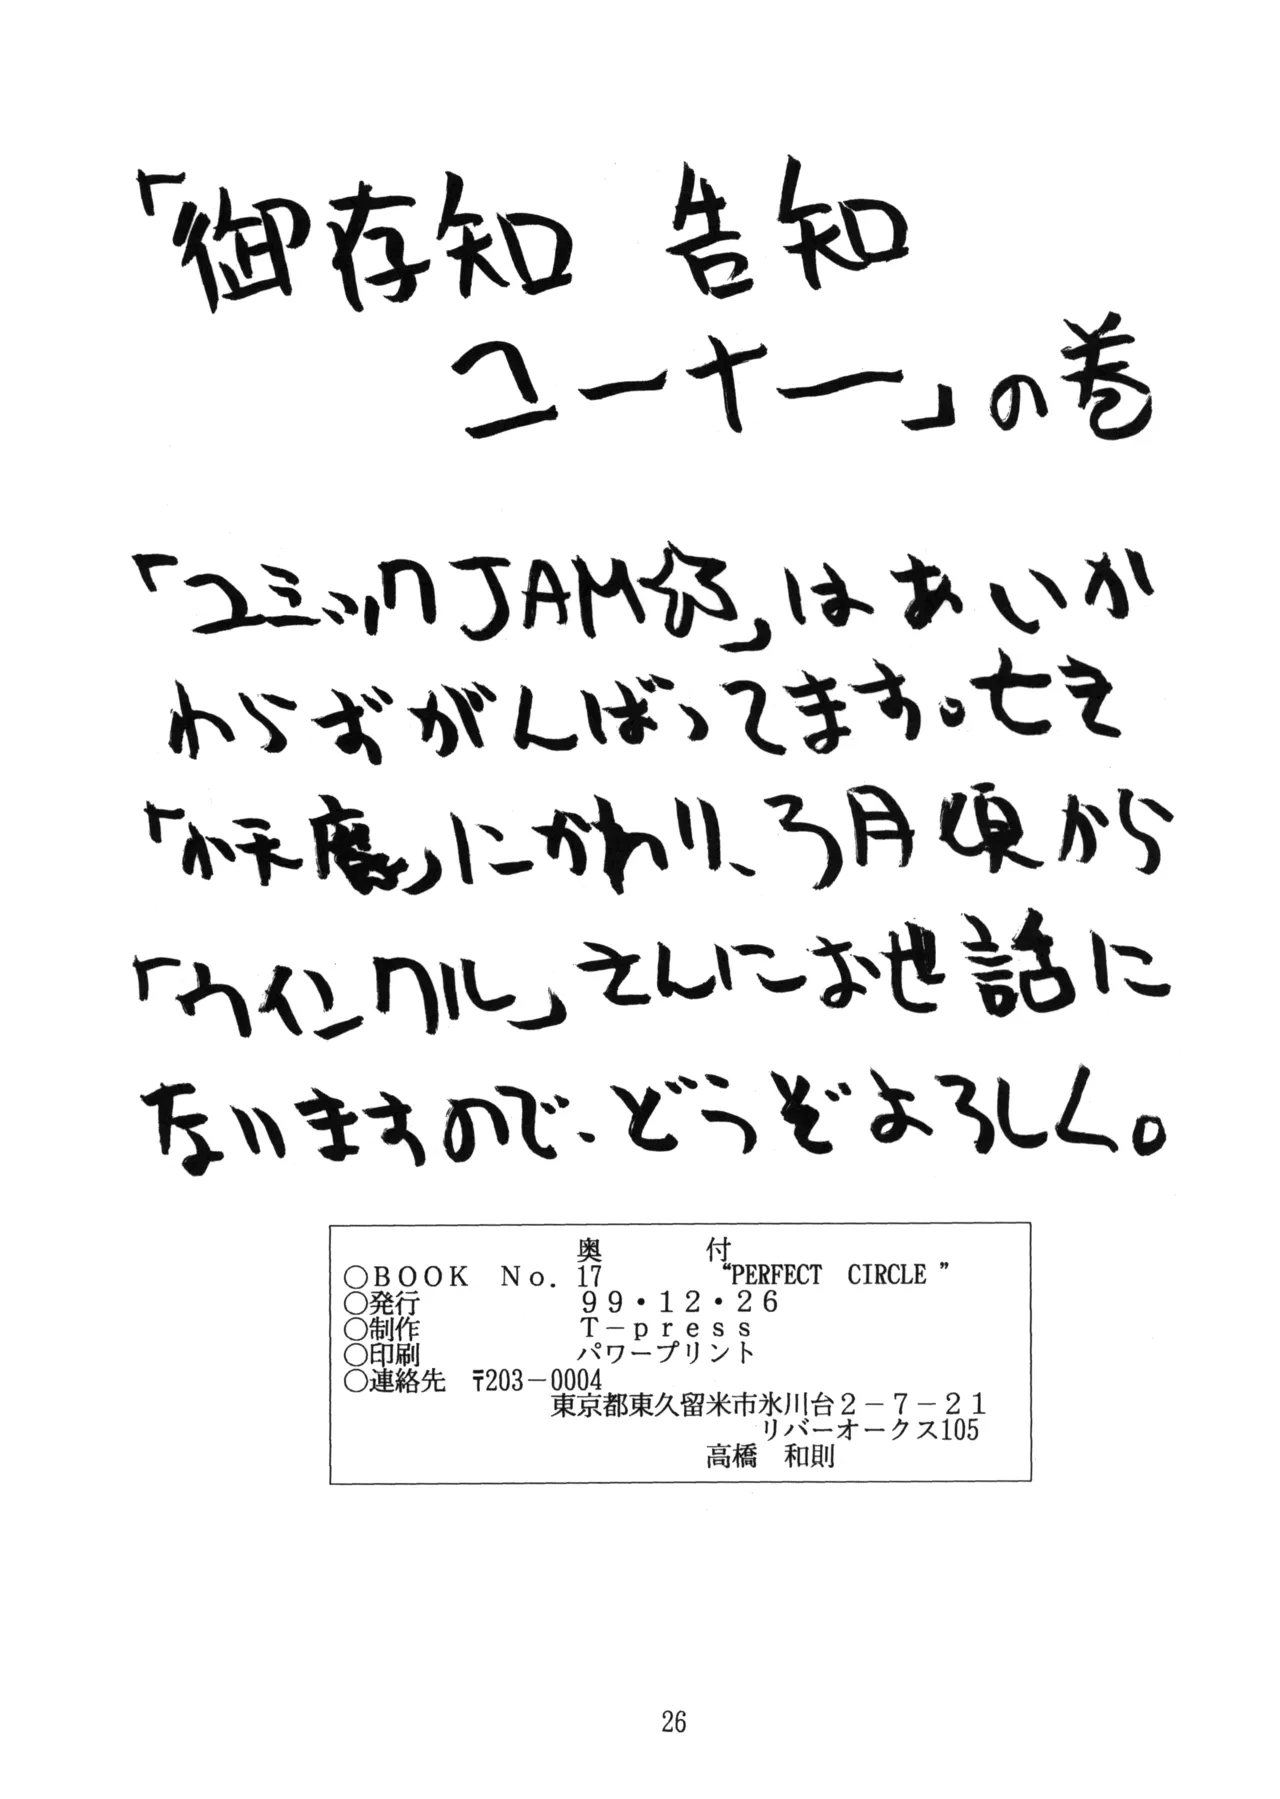 「御存知 告知
コーナー」の巻
「コミックJAM
」はあいか
わらずがんばってます。亡き
「
」にかわり、3月頃から
「ウインクル」さんにお世話に
なりますので、どうぞよろしく。
奥　　　　付
○ＢＯＯＫ　Ｎｏ．17　　“PERFECT CIRCLE ”
○発行　　９９・１２・２６
○制作　　Ｔ－ｐｒｅｓｓ
○印刷　　パワープリント
○連絡先　〒203－0004
東京都東久留米市氷川台２－７－２１
リバーオークス105
高橋　和則
26